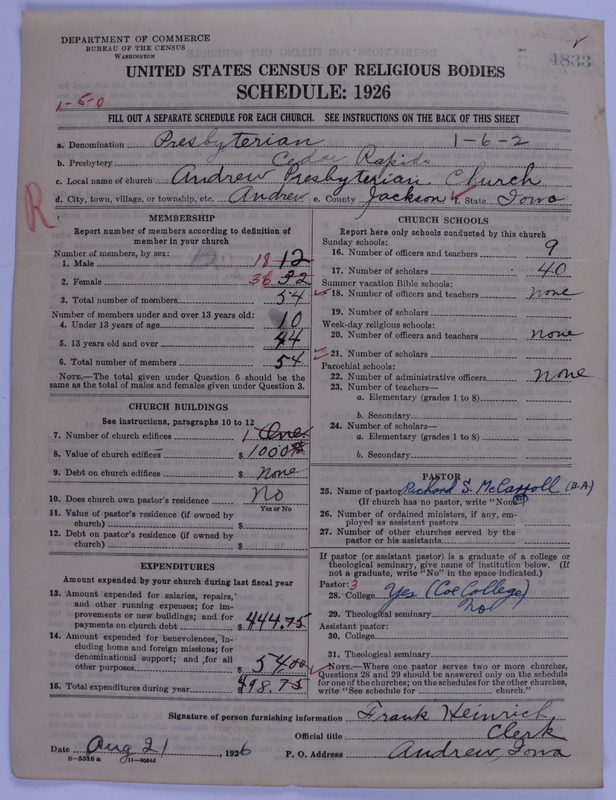 DEPARTMENT OF COMMERCE
BUREAU OF THE CENSUS
WASHINGTON
4833
UNITED STATES CENSUS OF RELIGIOUS BODIES
SCHEDULE: 1926
1-5-0
FILL OUT A SEPARATE SCHEDULE FOR EACH CHURCH. SEE INSTRUCTIONS ON THE BACK OF THIS SHEET
a. Denomination Presbyterian 1-6-2
b. Presbytery Cedar Rapids
c. Local name of church Andrew Presbyterian Church
d. City, town, village, or township, etc. Andrew e. County Jackson f. State Iowa
R
MEMBERSHIP
Report number of members according to definition of member in your church
Number of members, by sex:
1. Male 18 12
2. Female 36 32
3. Total number of members 54
Number of members under and over 13 years old:
4. Under 13 years of age 10
5. 13 years old and over 44
6. Total number of members 54
NOTE.—The total given under Question 6 should be the same as the total of males and females given under Question 3.
CHURCH BUILDINGS
See instructions, paragraphs 10 to 12
7. Number of church edifices 1 One
8. Value of church edifices $ 1000
9. Debt on church edifices $ None
10. Does church own pastor's residence No
Yes or No
11. Value of pastor's residence (if owned by church) $
12. Debt on pastor's residence (if owned by church) $
EXPENDITURES
Amount expended by your church during last fiscal year
13. Amount expended for salaries, repairs, and other running expenses; for improvements or new buildings; and for payments on church debt $ 444.75
14. Amount expended for benevolences, including home and foreign missions; for denominational support; and for all other purposes $ 54.00
15. Total expenditures during year $ 498.75
CHURCH SCHOOLS
Report here only schools conducted by this church
Sunday schools:
16. Number of officers and teachers 9
17. Number of scholars 40
Summer vacation Bible schools:
18. Number of officers and teachers none
19. Number of scholars
Week-day religious schools:
20. Number of officers and teachers none
21. Number of scholars
Parochial schools:
22. Number of administrative officers none
23. Number of teachers—
a. Elementary (grades 1 to 8)
b. Secondary
24. Number of scholars—
a. Elementary (grades 1 to 8)
b. Secondary
PASTOR
25. Name of pastor Richard S. McCarroll (B.A.)
(If church has no pastor, write "None")
26. Number of ordained ministers, if any, employed as assistant pastors
27. Number of other churches served by the pastor or his assistants
If pastor (or assistant pastor) is a graduate of a college or theological seminary, give name of institution below. (If not a graduate, write "No" in the space indicated.)
Pastor: 3
28. College Yes (Coe College)
29. Theological seminary No
Assistant pastor:
30. College
31. Theological seminary
NOTE.—Where one pastor serves two or more churches, Questions 28 and 29 should be answered only on the schedule for one of the churches; on the schedules for the other churches, write "See schedule for church."
Signature of person furnishing information Frank Heinrich
Official title Clerk
Date Aug 21, 1926 P. O. Address Andrew, Iowa
8-5518 a